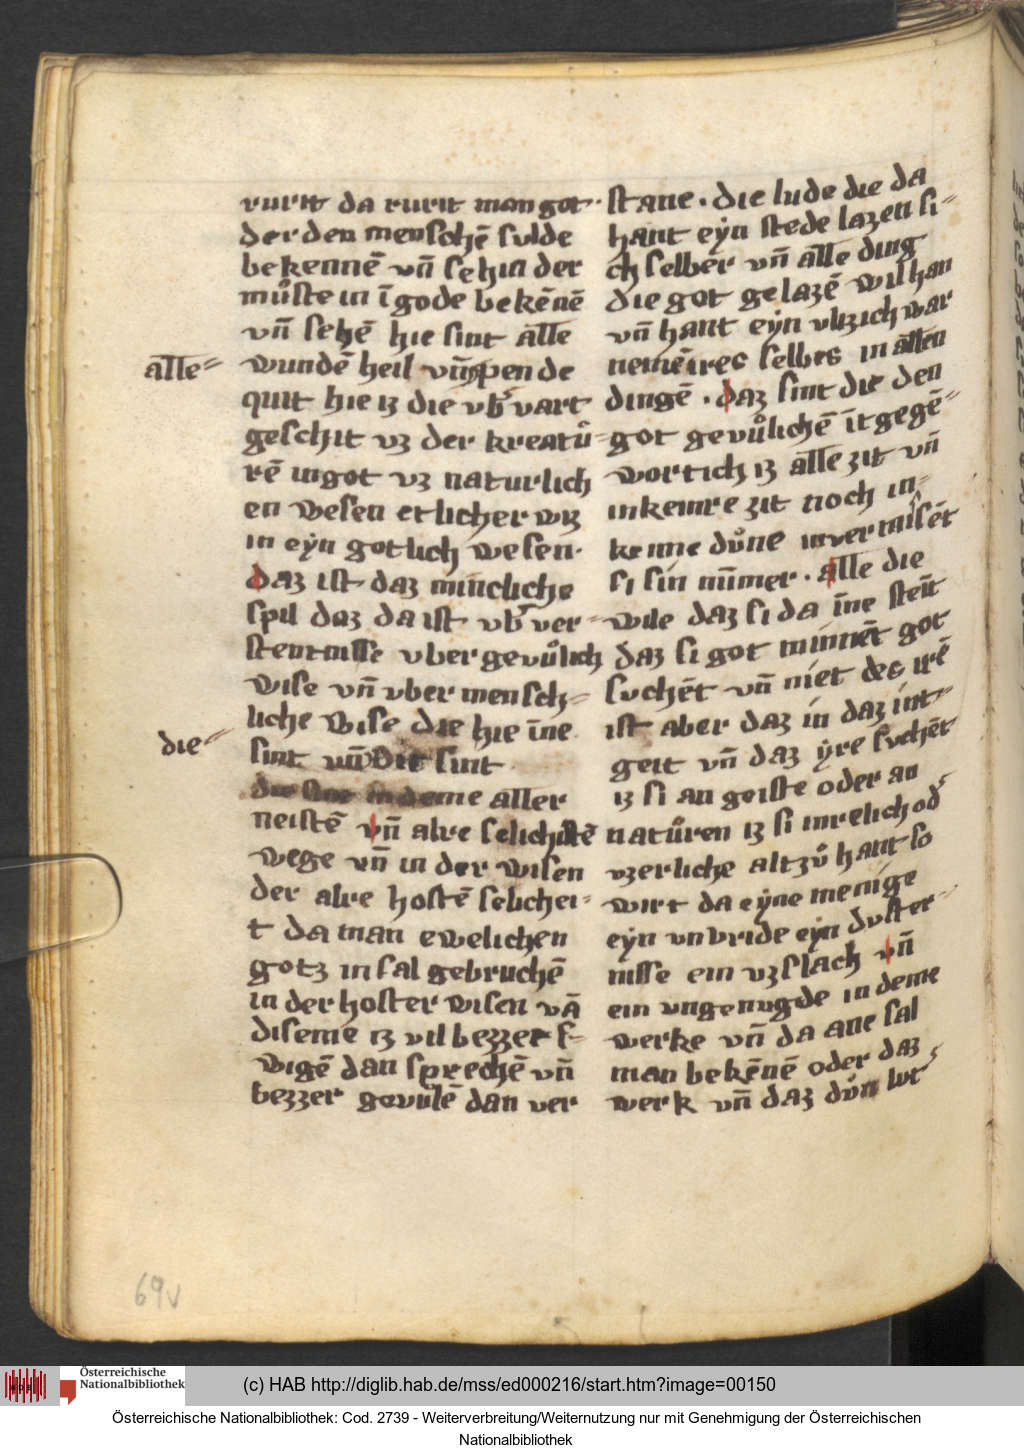 rurit da rurit man got ·
der den menschē sulde
bekennē vn̄ sehin der
můste in ī gode bekēnē
vn̄ sehē hie sint alle
alle=
wundē heil vn̄ spende
quit hie iz die vb̾ vart
geschit vz der kreatů=
rē in got vz naturlich
en wesen etlicher wiz
in eẏn gotlich wesen·
daz ist daz mincliche
spil daz da ist vb̾ ver=
stentnisse vber gevůlich
wise vn̄ vber mensch=
liche wise die hie īne
die=
sint vn̄ dit sint
deme aller
neistē vn̄ alre selichstē
wege vn̄ in der wisen
der alre hostē selichei=
t da man ewelichen
gotz in sal gebruchē
in der hoster wisen vā
diseme iz vil bezzer s=
wigē dan sprechē vn̄
bezzer gevulē dan ver
stane . die lude die da
hant eẏn stede lazen si=
ch selber vn̄ alle ding
die got gelazē wil han
vn̄ hant eẏn vlizich war
nemē ires selbes in allen
dingē . daz sint die den
got gevůlichē ītgegē=
wortich iz alle zit vn̄
inkeinre zit noch in=
kenne důne in vermisēt
si sin nūmer . alle die
wile daz si da īne steīt
daz si got minnēt got
svchēt vn̄ niet des irē
ist aber daz in daz int=
geit vn̄ daz ẏre svchēt
iz si an geiste oder an
natůren iz si inrelich od̾
vzerliche altzů hant so
wirt da eẏne menige
eẏn vnvride eẏn duster=
nisse ein vzslach vn̄
ein vngenugde in deme
werke vn̄ da ane sal
man bekēnē oder daz
werk vn̄ daz důn lut̾
69v
Österreichische
Nationalbibliothek
(c) HAB http://diglib.hab.de/mss/ed000216/start.htm?image=00150
Österreichische Nationalbibliothek: Cod. 2739 - Weiterverbreitung/Weiternutzung nur mit Genehmigung der Österreichischen
Nationalbibliothek